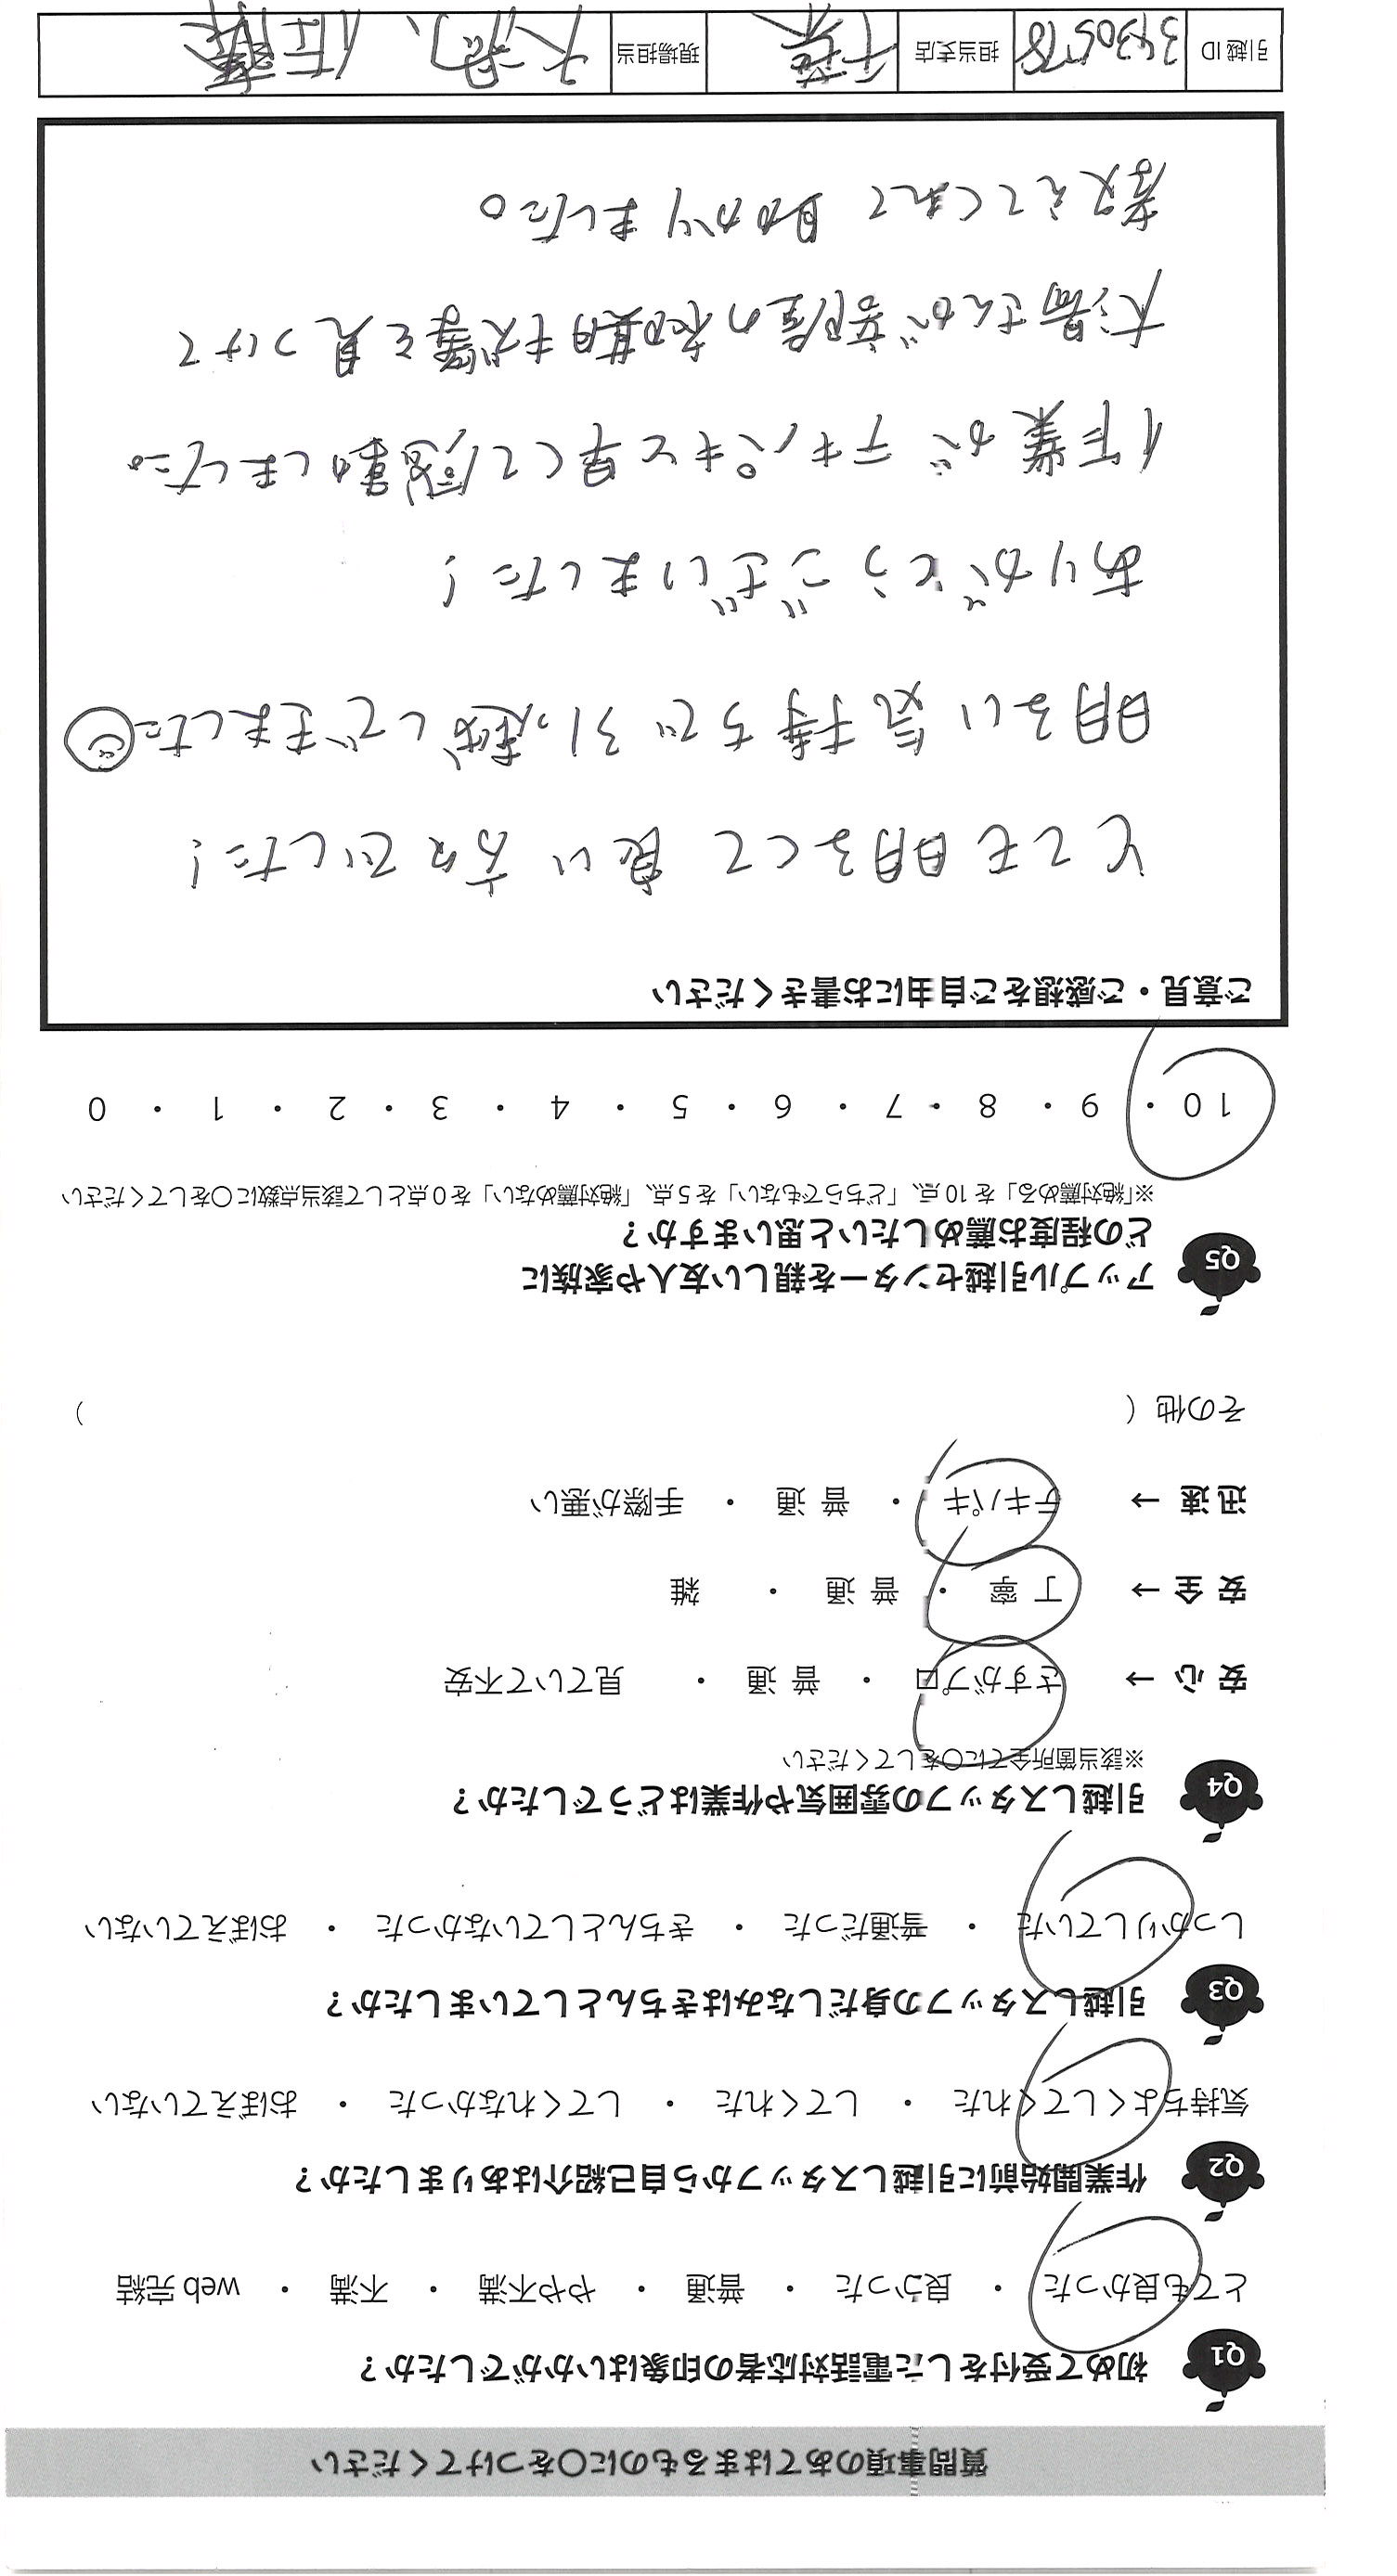 質問事項のあてはまるものに〇をつけてください
Q1 初めて受付をした電話対応者の印象はいかがでしたか？
とても良かった ・ 良かった ・ 普通 ・ やや不満 ・ 不満 ・ web 完結
Q2 作業開始前に引越しスタッフから自己紹介はありましたか？
気持ちよくしてくれた ・ してくれた ・ してくれなかった ・ おぼえていない
Q3 引越しスタッフの身だしなみはきちんとしていましたか？
しっかりしていた ・ 普通だった ・ きちんとしていなかった ・ おぼえていない
Q4 引越しスタッフの雰囲気や作業はどうでしたか？
※該当箇所全てに〇をしてください
安 心 → さすがプロ ・ 普 通 ・ 見ていて不安
安 全 → 丁 寧 ・ 普 通 ・ 雑
迅 速 → テキパキ ・ 普 通 ・ 手際が悪い
その他（ ）
Q5 アップル引越センターを親しい友人や家族に
どの程度お薦めしたいと思いますか？
※「絶対薦める」を 10 点、「どちらでもない」を 5 点、「絶対薦めない」を 0 点として該当点数に〇をしてください
10 ・ 9 ・ 8 ・ 7 ・ 6 ・ 5 ・ 4 ・ 3 ・ 2 ・ 1 ・ 0
ご意見・ご感想をご自由にお書きください
とても明るくて 良い 方々でした！
明るい気持ちで引っ越しできました
ありがとうございました！
作業がテキパキと早くて感動しました。
大湯さんが部屋の初期キズ等を見つけて
教えてくれて 助かりました。
引越 ID 3430578 担当支店 千葉 現場担当 大湯、佐藤